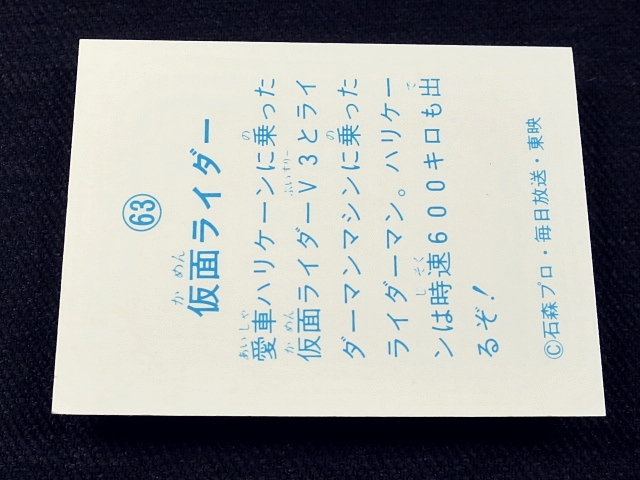 63
仮面ライダー
愛車ハリケーンに乗った
仮面ライダーV3とライ
ダーマンマシンに乗った
ライダーマン。ハリケー
ンは時速600キロも出
るぞ!
©石森プロ・毎日放送・東映